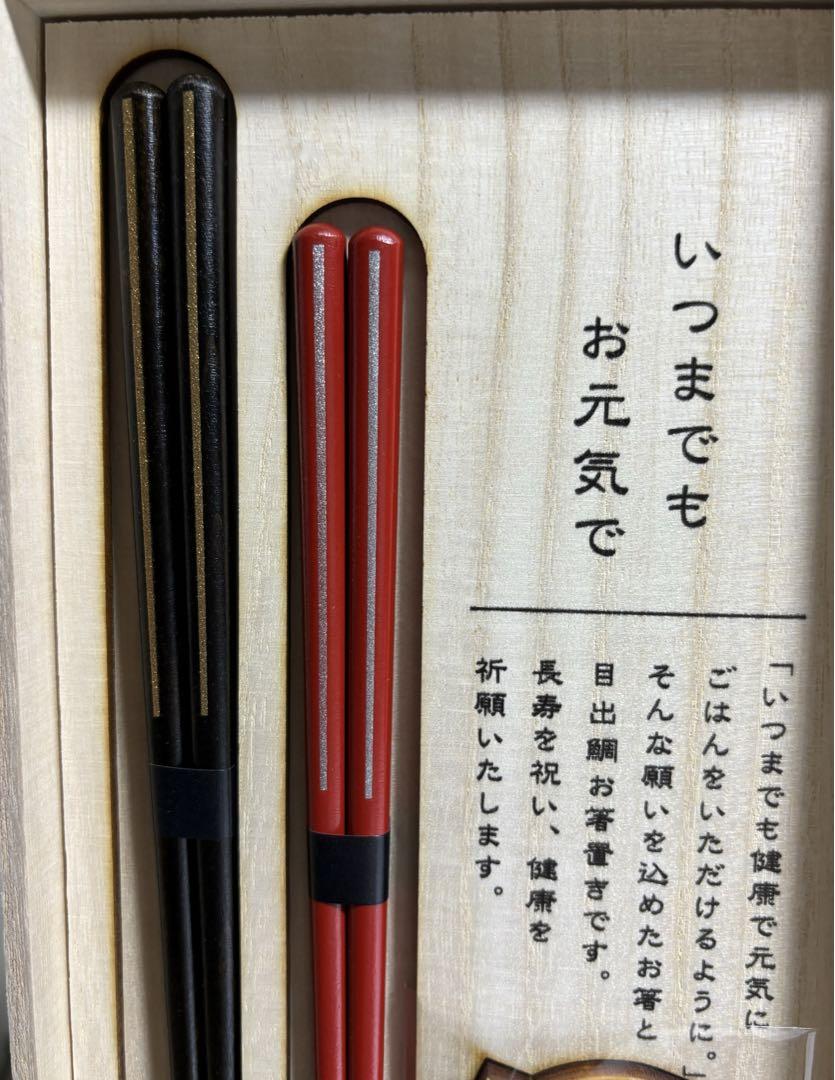 いつまでも
お元気で
「いつまでも健康で元気に
ごはんをいただけるように。」
そんな願いを込めたお箸と
目出鯛お箸置きです。
長寿を祝い、健康を
祈願いたします。